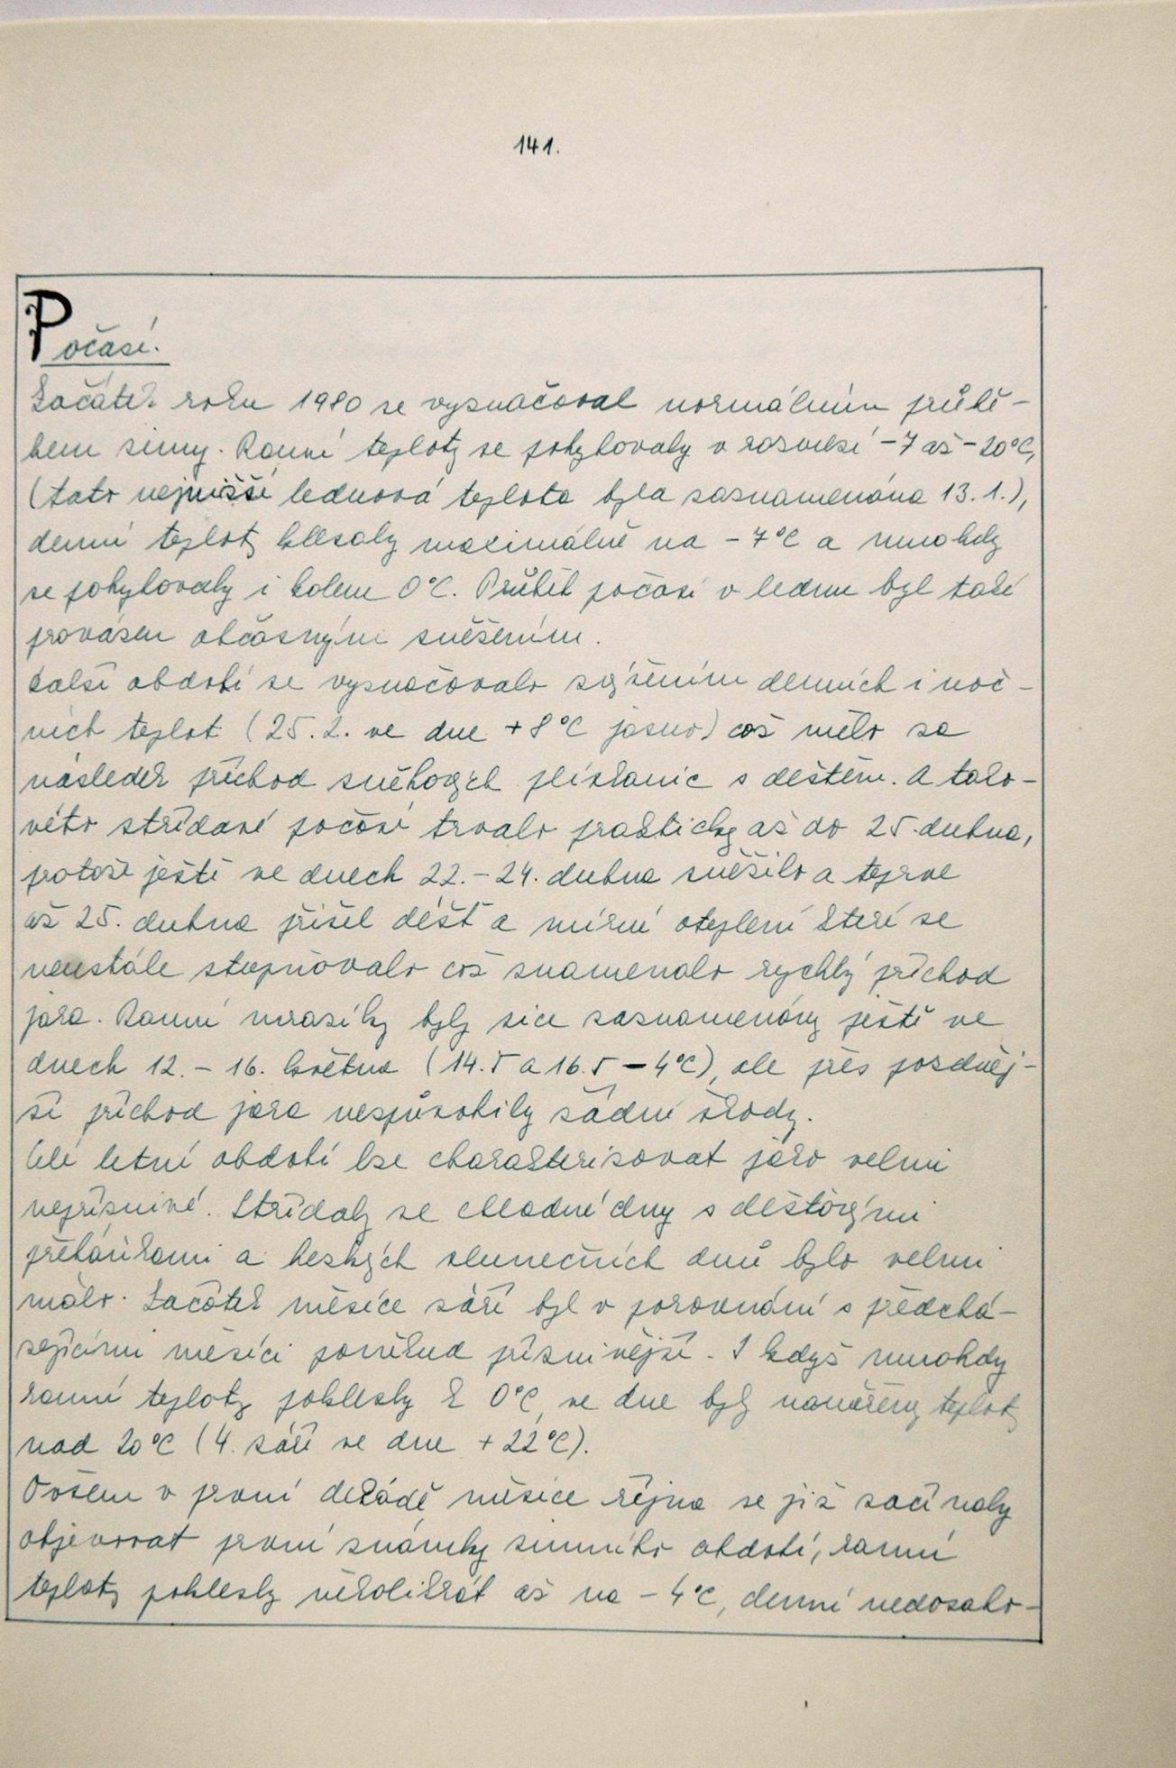 141.
Počasí.
Začátek roku 1980 se vyznačoval normálním průbě-
hem zimy. Ranní teploty se pohybovaly v rozmezí -7 až -20°C,
(tato nejnižší lednová teplota byla zaznamenána 13.1.),
denní teploty klesaly maximálně na -7°C a mnohdy
se pohybovaly i kolem 0°C. Průběh počasí v lednu byl také
provázen občasným sněžením.
Další období se vyznačovalo zvýšením denních i noč-
ních teplot (25.2. ve dne +8°C jasno) což mělo za
následek příchod sněhových plískanic s deštěm. A tako-
véto střídavé počasí trvalo prakticky až do 25. dubna,
protože ještě ve dnech 22.-24. dubna sněžilo a teprve
až 25. dubna přišel déšť a mírné oteplení které se
neustále stupňovalo což znamenalo rychlý příchod
jara. Ranní mrazíky byly sice zaznamenány ještě ve
dnech 12.-16. května (14.5 a 16.5 -4°C), ale přes pozděj-
ší příchod jara nezpůsobily žádné škody.
Celé letní období lze charakterisovat jako velmi
nepříznivé. Střídaly se chladné dny s deštovými
přeháňkami a hezkých slunečních dnů bylo velmi
málo. Začátek měsíce září byl v porovnání s předchá-
zejícími měsíci poněkud příznivější. I když mnohdy
ranní teploty poklesly k 0°C, ve dne byly naměřeny teploty
nad 20°C (4. září ve dne +22°C).
Ovšem v první dekádě měsíce října se již začínaly
objevovat první známky zimního období, ranní
teploty poklesly několikrát až na -4°C, denní nedosaho-